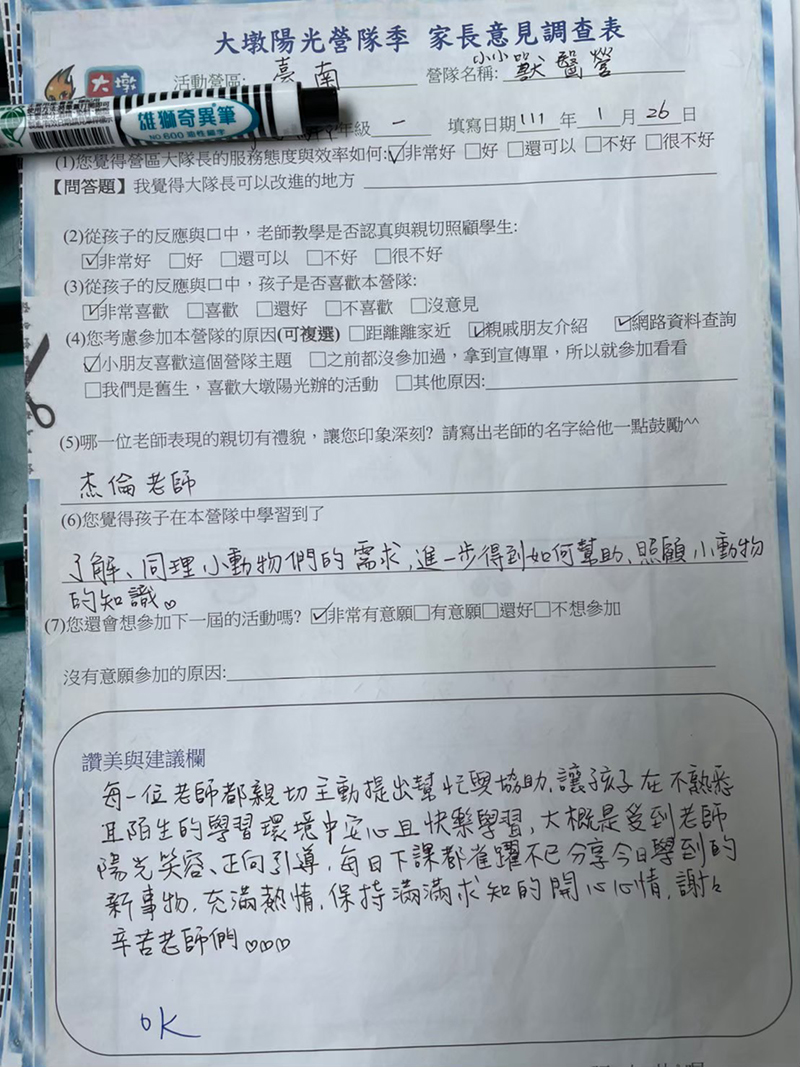 大墩陽光營隊季 家長意見調查表
大墩
活動營區: 臺南 營隊名稱: 小小獸醫營
雄獅奇異筆
NO.600 油性細字
年級 一 填寫日期 111 年 1 月 26 日
(1)您覺得營區大隊長的服務態度與效率如何: ☑非常好 □好 □還可以 □不好 □很不好
【問答題】我覺得大隊長可以改進的地方
(2)從孩子的反應與口中，老師教學是否認真與親切照顧學生:
☑非常好 □好 □還可以 □不好 □很不好
(3)從孩子的反應與口中，孩子是否喜歡本營隊:
☑非常喜歡 □喜歡 □還好 □不喜歡 □沒意見
(4)您考慮參加本營隊的原因(可複選) □距離離家近 ☑親戚朋友介紹 ☑網路資料查詢
☑小朋友喜歡這個營隊主題 □之前都沒參加過，拿到宣傳單，所以就參加看看
□我們是舊生，喜歡大墩陽光辦的活動 □其他原因:
(5)哪一位老師表現的親切有禮貌，讓您印象深刻? 請寫出老師的名字給他一點鼓勵^^
杰倫老師
(6)您覺得孩子在本營隊中學習到了
了解、同理小動物們的需求，進一步得到如何幫助、照顧小動物
的知識♡
(7)您還會想參加下一屆的活動嗎? ☑非常有意願□有意願□還好□不想參加
沒有意願參加的原因:
讚美與建議欄
每一位老師都親切主動提出幫忙與協助，讓孩子在不熟悉
且陌生的學習環境中安心且快樂學習，大概是受到老師
陽光笑容、正向引導，每日下課都雀躍不已分享今日學到的
新事物，充滿熱情，保持滿滿求知的開心心情，謝謝
辛苦老師們♡♡♡
OK